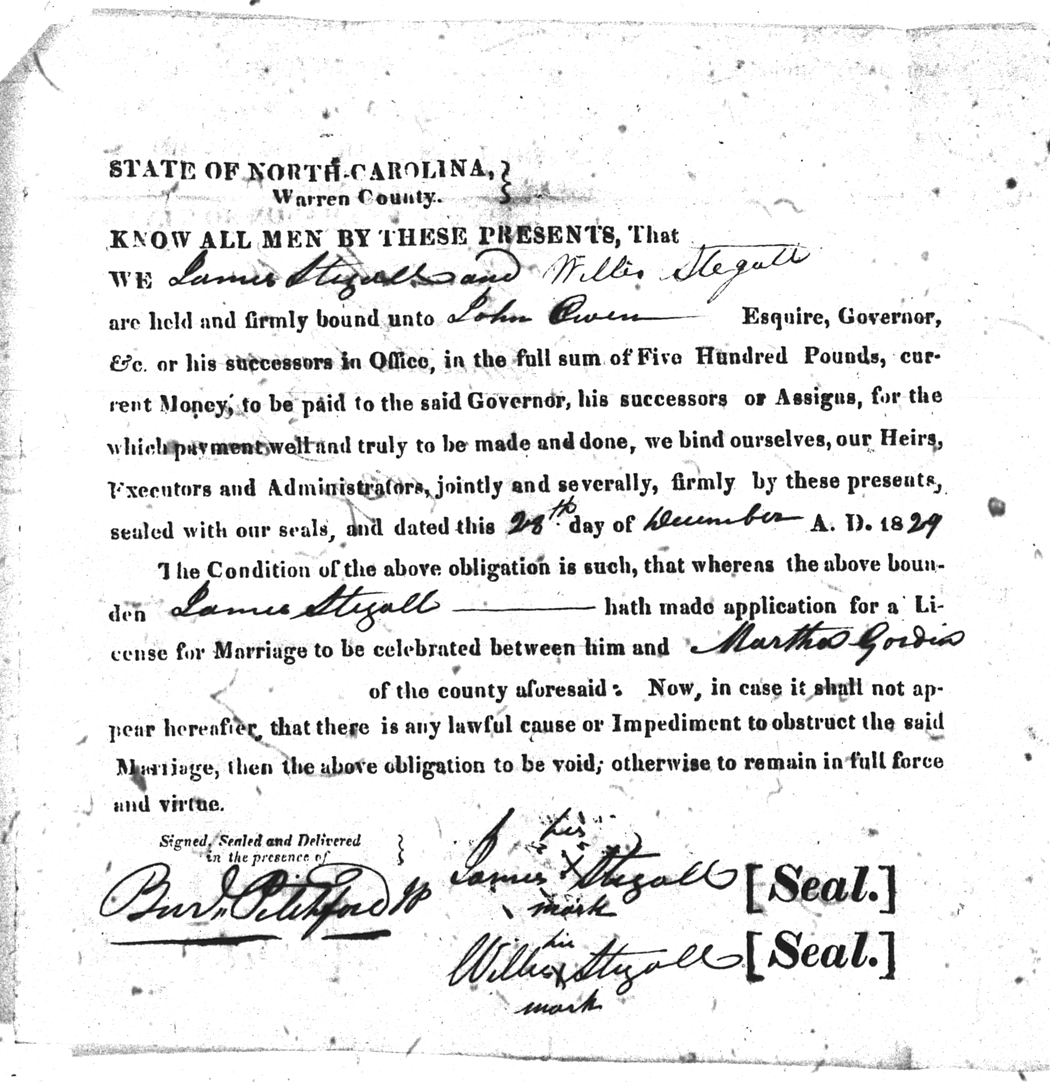 STATE OF NORTH-CAROLINA,
Warren County.
KNOW ALL MEN BY THESE PRESENTS, That
WE James Stegall and Willis Stegall
are held and firmly bound unto John Owen Esquire, Governor,
&c. or his successors in Office, in the full sum of Five Hundred Pounds, cur-
rent Money, to be paid to the said Governor, his successors or Assigns, for the
which payment well and truly to be made and done, we bind ourselves, our Heirs,
Executors and Administrators, jointly and severally, firmly by these presents,
sealed with our seals, and dated this 28th day of December A. D. 1829
The Condition of the above obligation is such, that whereas the above boun-
den James Stegall hath made application for a Li-
cense for Marriage to be celebrated between him and Martha Gordin
of the county aforesaid: Now, in case it shall not ap-
pear hereafter, that there is any lawful cause or Impediment to obstruct the said
Marriage, then the above obligation to be void; otherwise to remain in full force
and virtue.
Signed, Sealed and Delivered
in the presence of
Pitchford
his
James X Stegall [Seal.]
mark
his
Willis X Stegall [Seal.]
mark